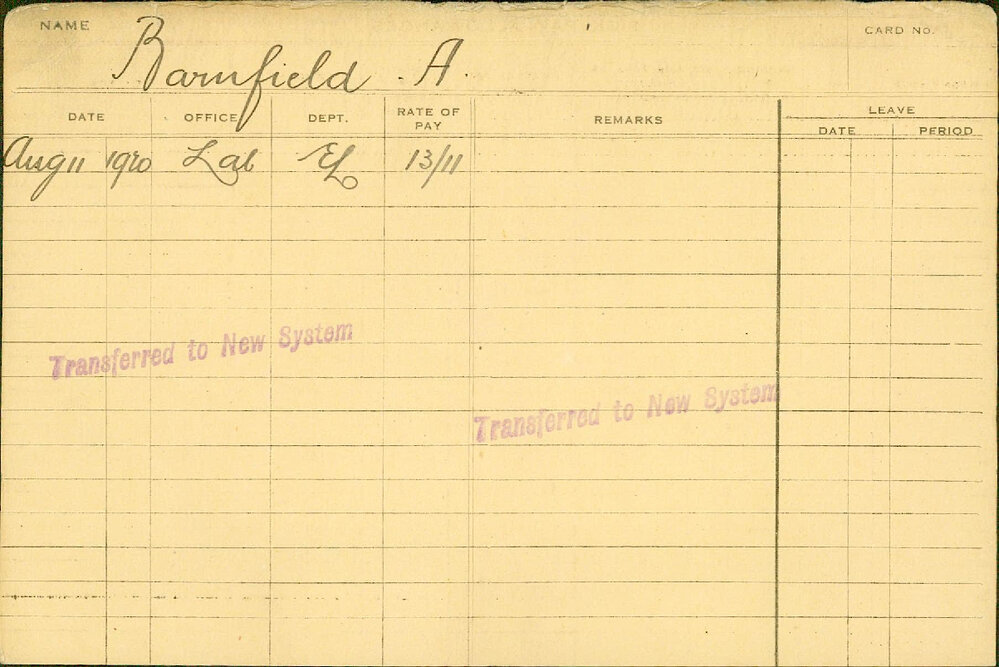 NAME
CARD No.
Barnfield A.
DATE OFFICE DEPT. RATE OF PAY REMARKS LEAVE
DATE PERIOD
Aug 11 1920 Lab EL 13/11
Transferred to New System
Transferred to New System